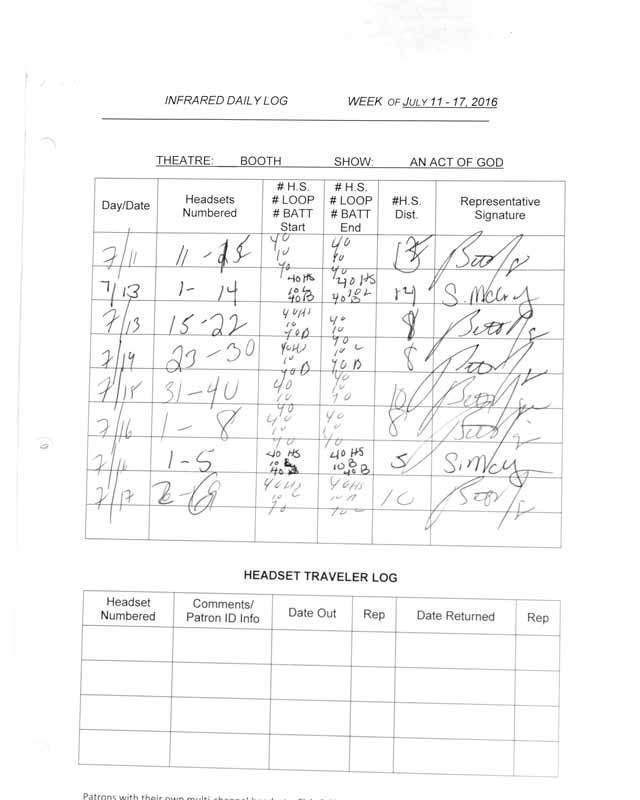 INFRARED DAILY LOG WEEK OF JULY 11 - 17, 2016
THEATRE: BOOTH SHOW: AN ACT OF GOD
Day/Date Headsets Numbered # H.S. # LOOP # BATT Start # H.S. # LOOP # BATT End #H.S. Dist. Representative Signature
7/11 11 - 40 10 40 40 40 40
7/13 1- 14 40 HS 10 L 40 B 40 HS 10 L 40 B 14 S. McCry
7/13 15-22 40 HS 10 40 B 40 10 40 8
7/14 23-30 40 HS 10 40 B 40 10 L 40 B 8
7/15 31-40 40 10 40 40 10 10
7/16 1 - 8 40 10 40 40 10 40 8
7/16 1-5 40 HS 10 B 40 B 40 HS 10 B 40 B 5
7/17 10 40 40 HS 10 10
HEADSET TRAVELER LOG
Headset Numbered Comments/ Patron ID Info Date Out Rep Date Returned Rep
Patrons with their own multi-channel